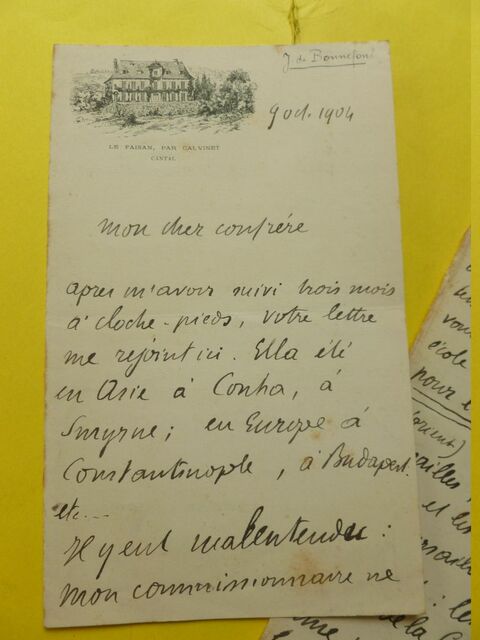 J de Bonnefont
9 oct. 1904
LE FAISAN, PAR CALVINET
CANTAL
mon cher confrére
apres m'avoir suivi trois mois
à cloche-pieds, votre lettre
me rejoint ici. Ella été
en Asie à Conha, à
Smyrne; en Europe à
Constantinople, à Budapest.
etc...
Il y eut malentendu :
mon commissionnaire ne
vous
école
pour l
(orient)
ailles
et les